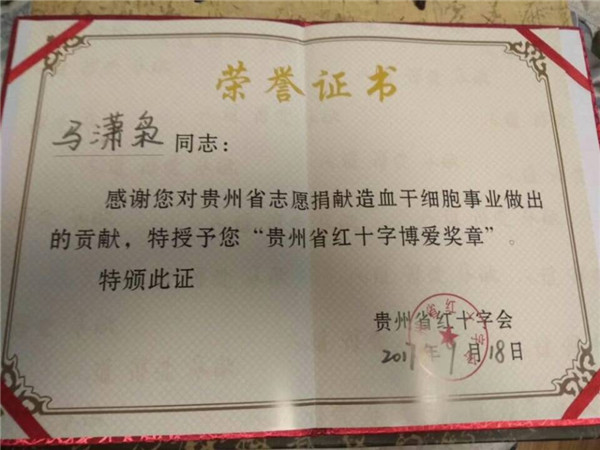 荣誉证书
马潇枭 同志：
感谢您对贵州省志愿捐献造血干细胞事业做出
的贡献，特授予您“贵州省红十字博爱奖章”。
特颁此证
贵州省红十字会
2017年9月18日